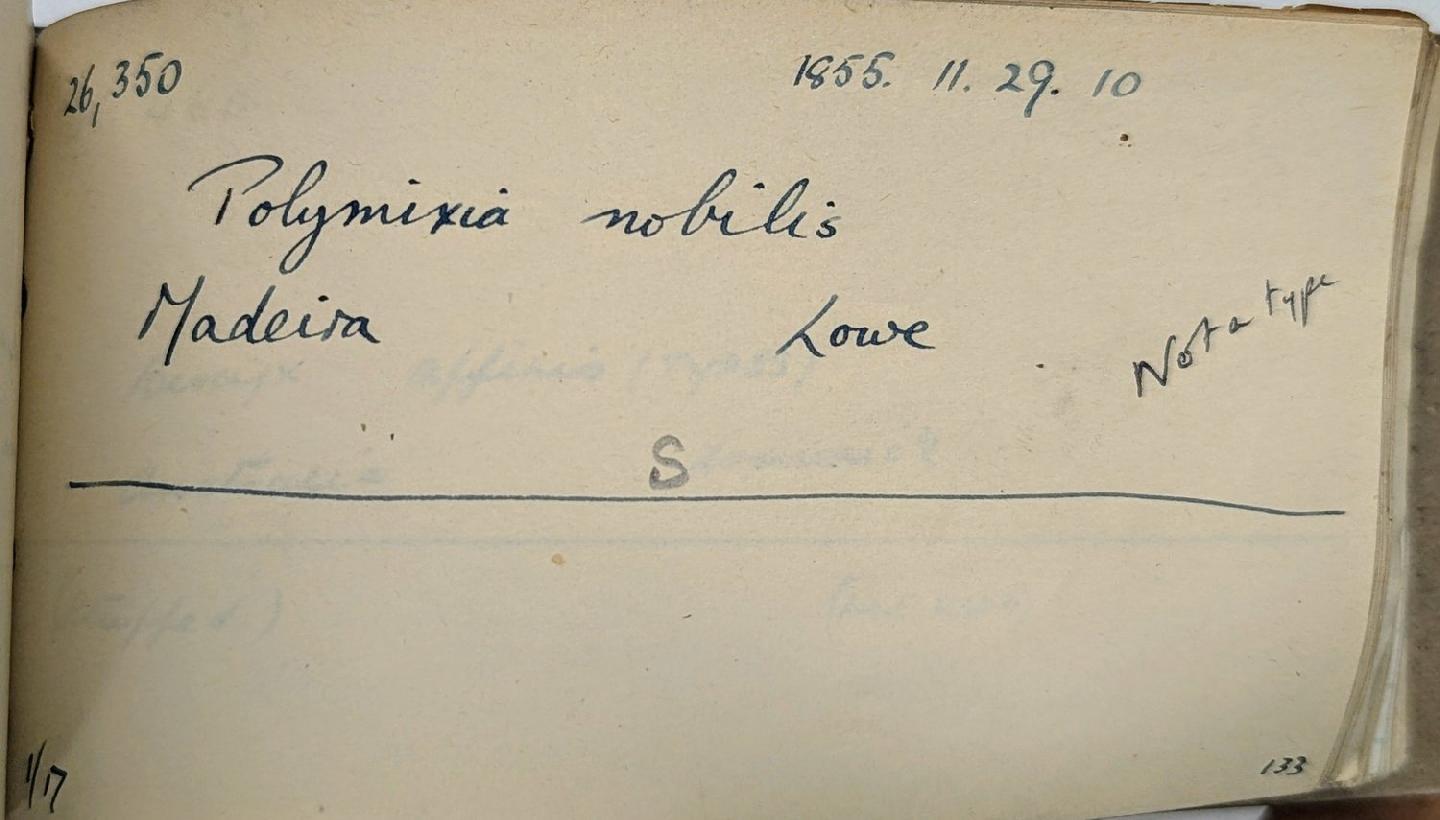 26,350 1855. 11. 29. 10
Polymixia nobilis
Madeira Lowe
Not a type
S
1/17 133